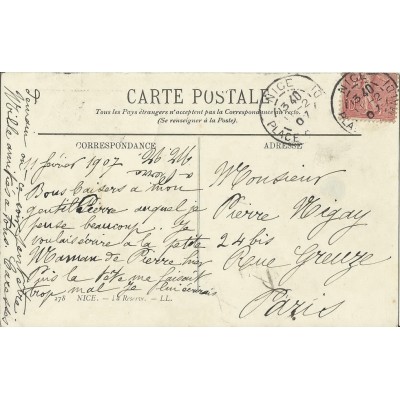 CARTE POSTALE
Tous les Pays étrangers n'acceptent pas la Correspondance au recto.
(Se renseigner à la Poste).
CORRESPONDANCE
ADRESSE
11 février 1907
Bons baisers à mon
gentil Pierre auquel je
pense beaucoup. Je
voulais écrire à la petite
Maman de Pierre hier
puis la tête me faisait
trop mal
Je
Monsieur
Pierre Nigay
24 bis
Rue Greuze
Paris
178 NICE. - La Réserve. - LL.
Mille amitiés à tous
NICE
PLACE
13 40
12 2
07
NICE
PLACE
13 40
12 2
07